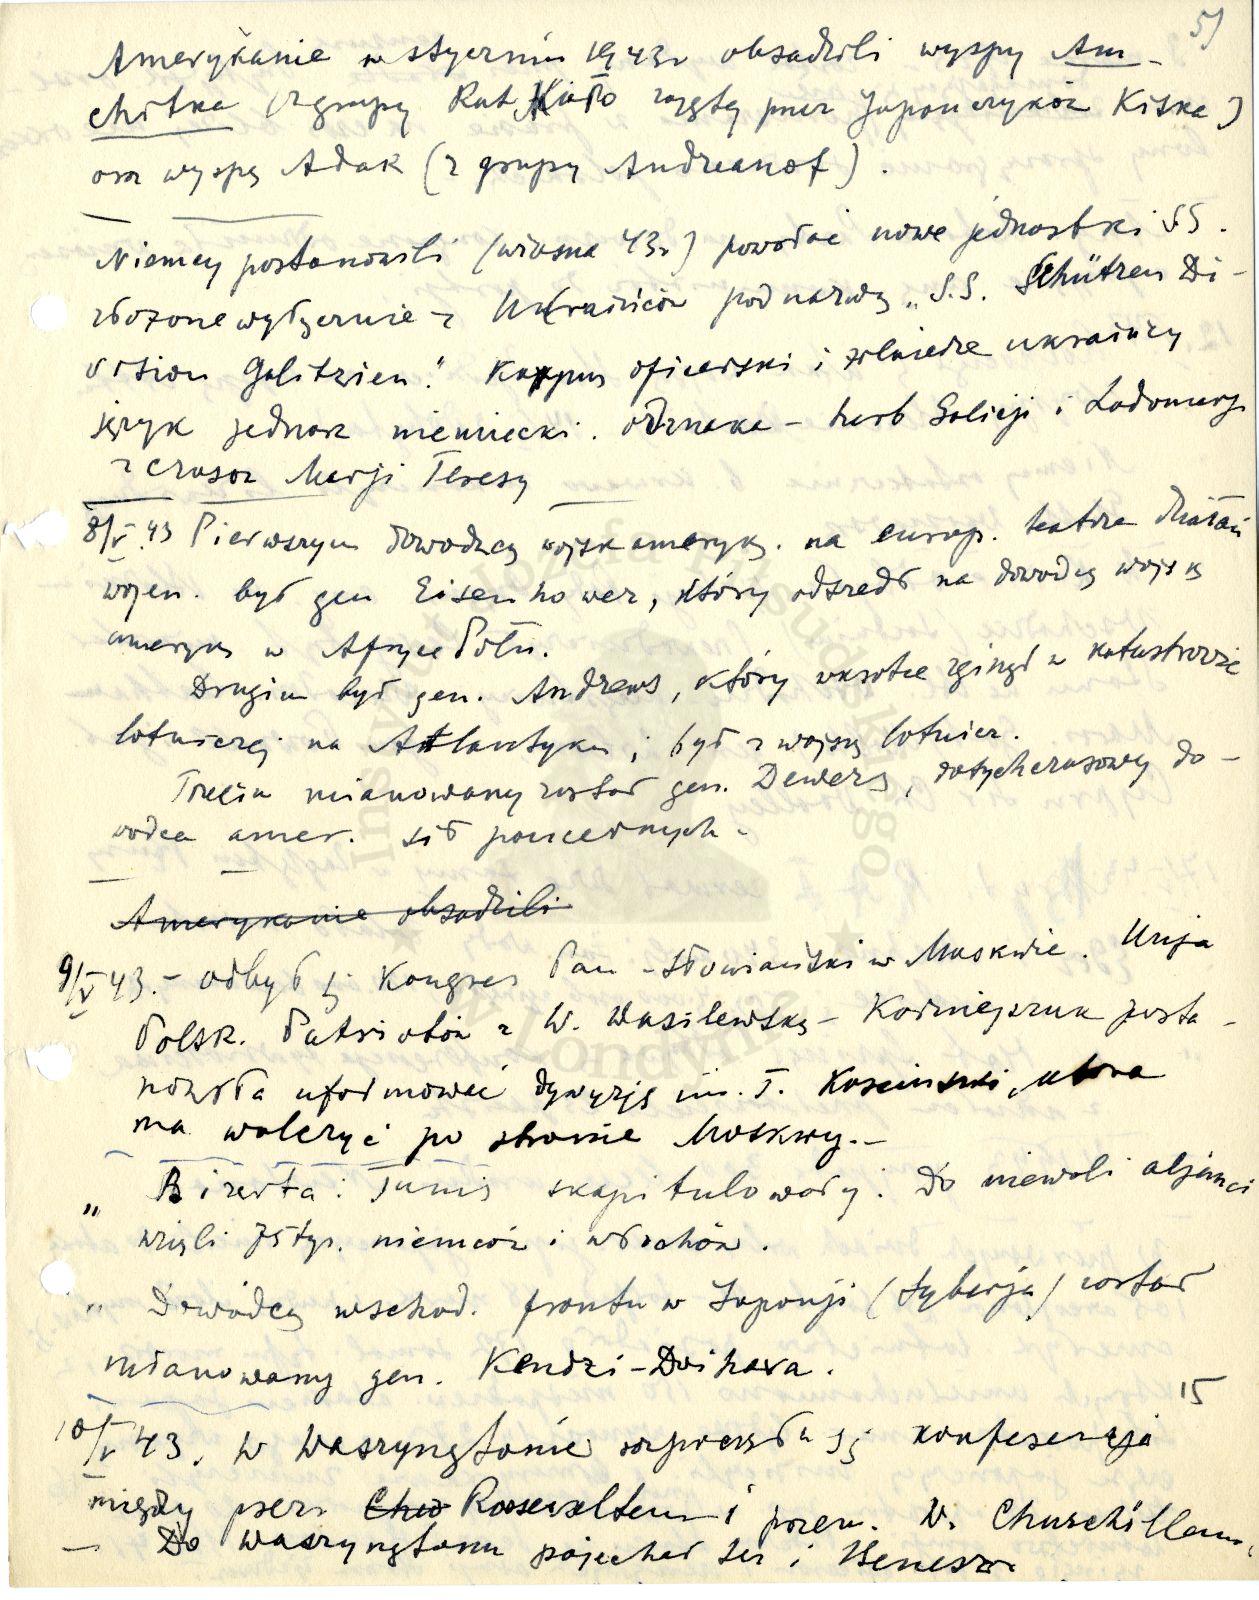 51
Amerykanie w styczniu 1943r obsadzili wyspy Am-
chitka (z grupy Rat, zajętą przez Japończyków Kiska)
oraz wyspę Adak (z grupy Andreanof).
Niemcy postanowili (wiosna 43r) powołać nowe jednostki SS.
złożone wyłącznie z Ukraińców pod nazwą „S.S. Schützen Di-
vision Galitzien." Korpus oficerski i żołnierze ukraińcy
język jednak niemiecki. odznaka – herb Galicji i Lodomerji
z czasów Marji Teresy
8/V.43 Pierwszym dowódcą wojsk ameryk. na europ. teatrze działań
wojen. był gen Eisenhower, który odszedł na dowódcę wojsk
ameryk w Afryce Półn.
Drugim był gen. Andrews, który wkrótce zginął w katastrofie
lotniczej na Atlantyku; był z wojsk lotnicz.
Trzecim mianowany został gen. Dewers, dotychczasowy do-
wódca amer. sił pancernych.
Amerykanie obsadzili
9/V 43.– odbył się Kongres Pan-słowiański w Moskwie. Unja
Polsk. Patriotów z W. Wasilewską – Korniejczuk posta-
nowiła uformować dywizję im. T. Kosciuszki, która
ma walczyć po stronie Moskwy.–
„ Bizerta i Tunis skapitulowały. Do niewoli aljanci
wzięli 75 tys. niemców i włochów.
„ Dowódcą wschod. frontu w Japonji (Syberja) został
mianowany gen. Kendzi-Doihara.
15
10/V 43. W Waszyngtonie rozpoczęła się konferencja
między prez. Chur Rooseveltem i prem. W. Churchillem.
– Do Waszyngtonu pojechał też i Benesz.
Instytut Józefa Piłsudskiego
w Londynie